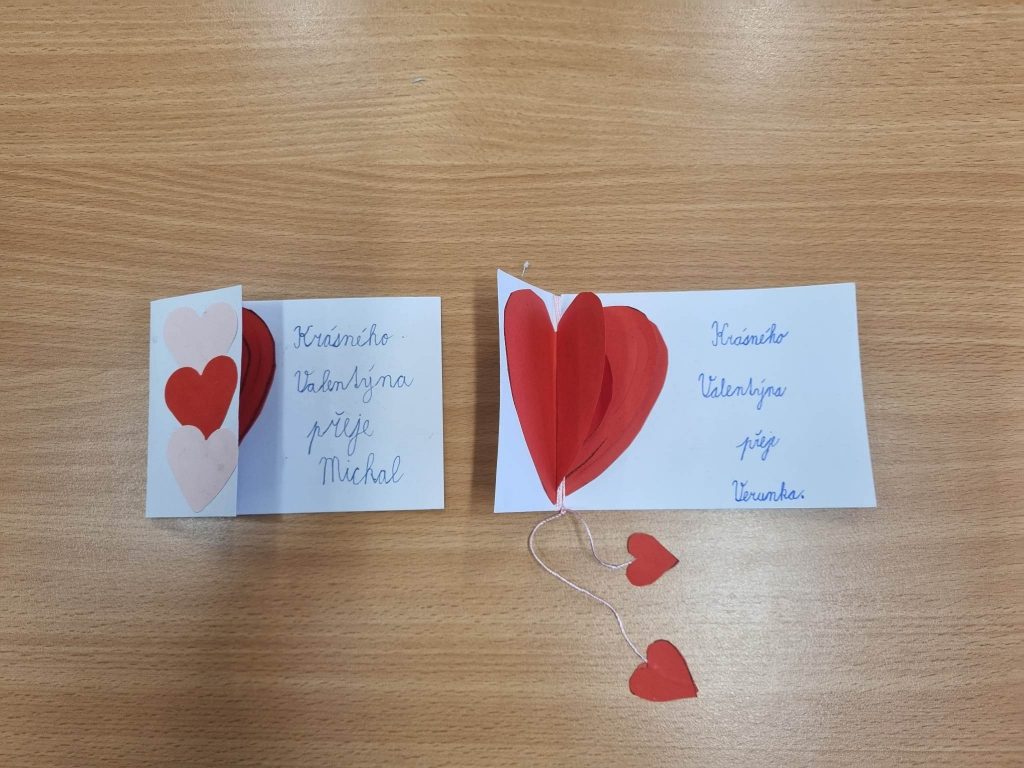 Krásného
Valentýna
přeje
Michal
Krásného
Valentýna
přeje
Verunka.